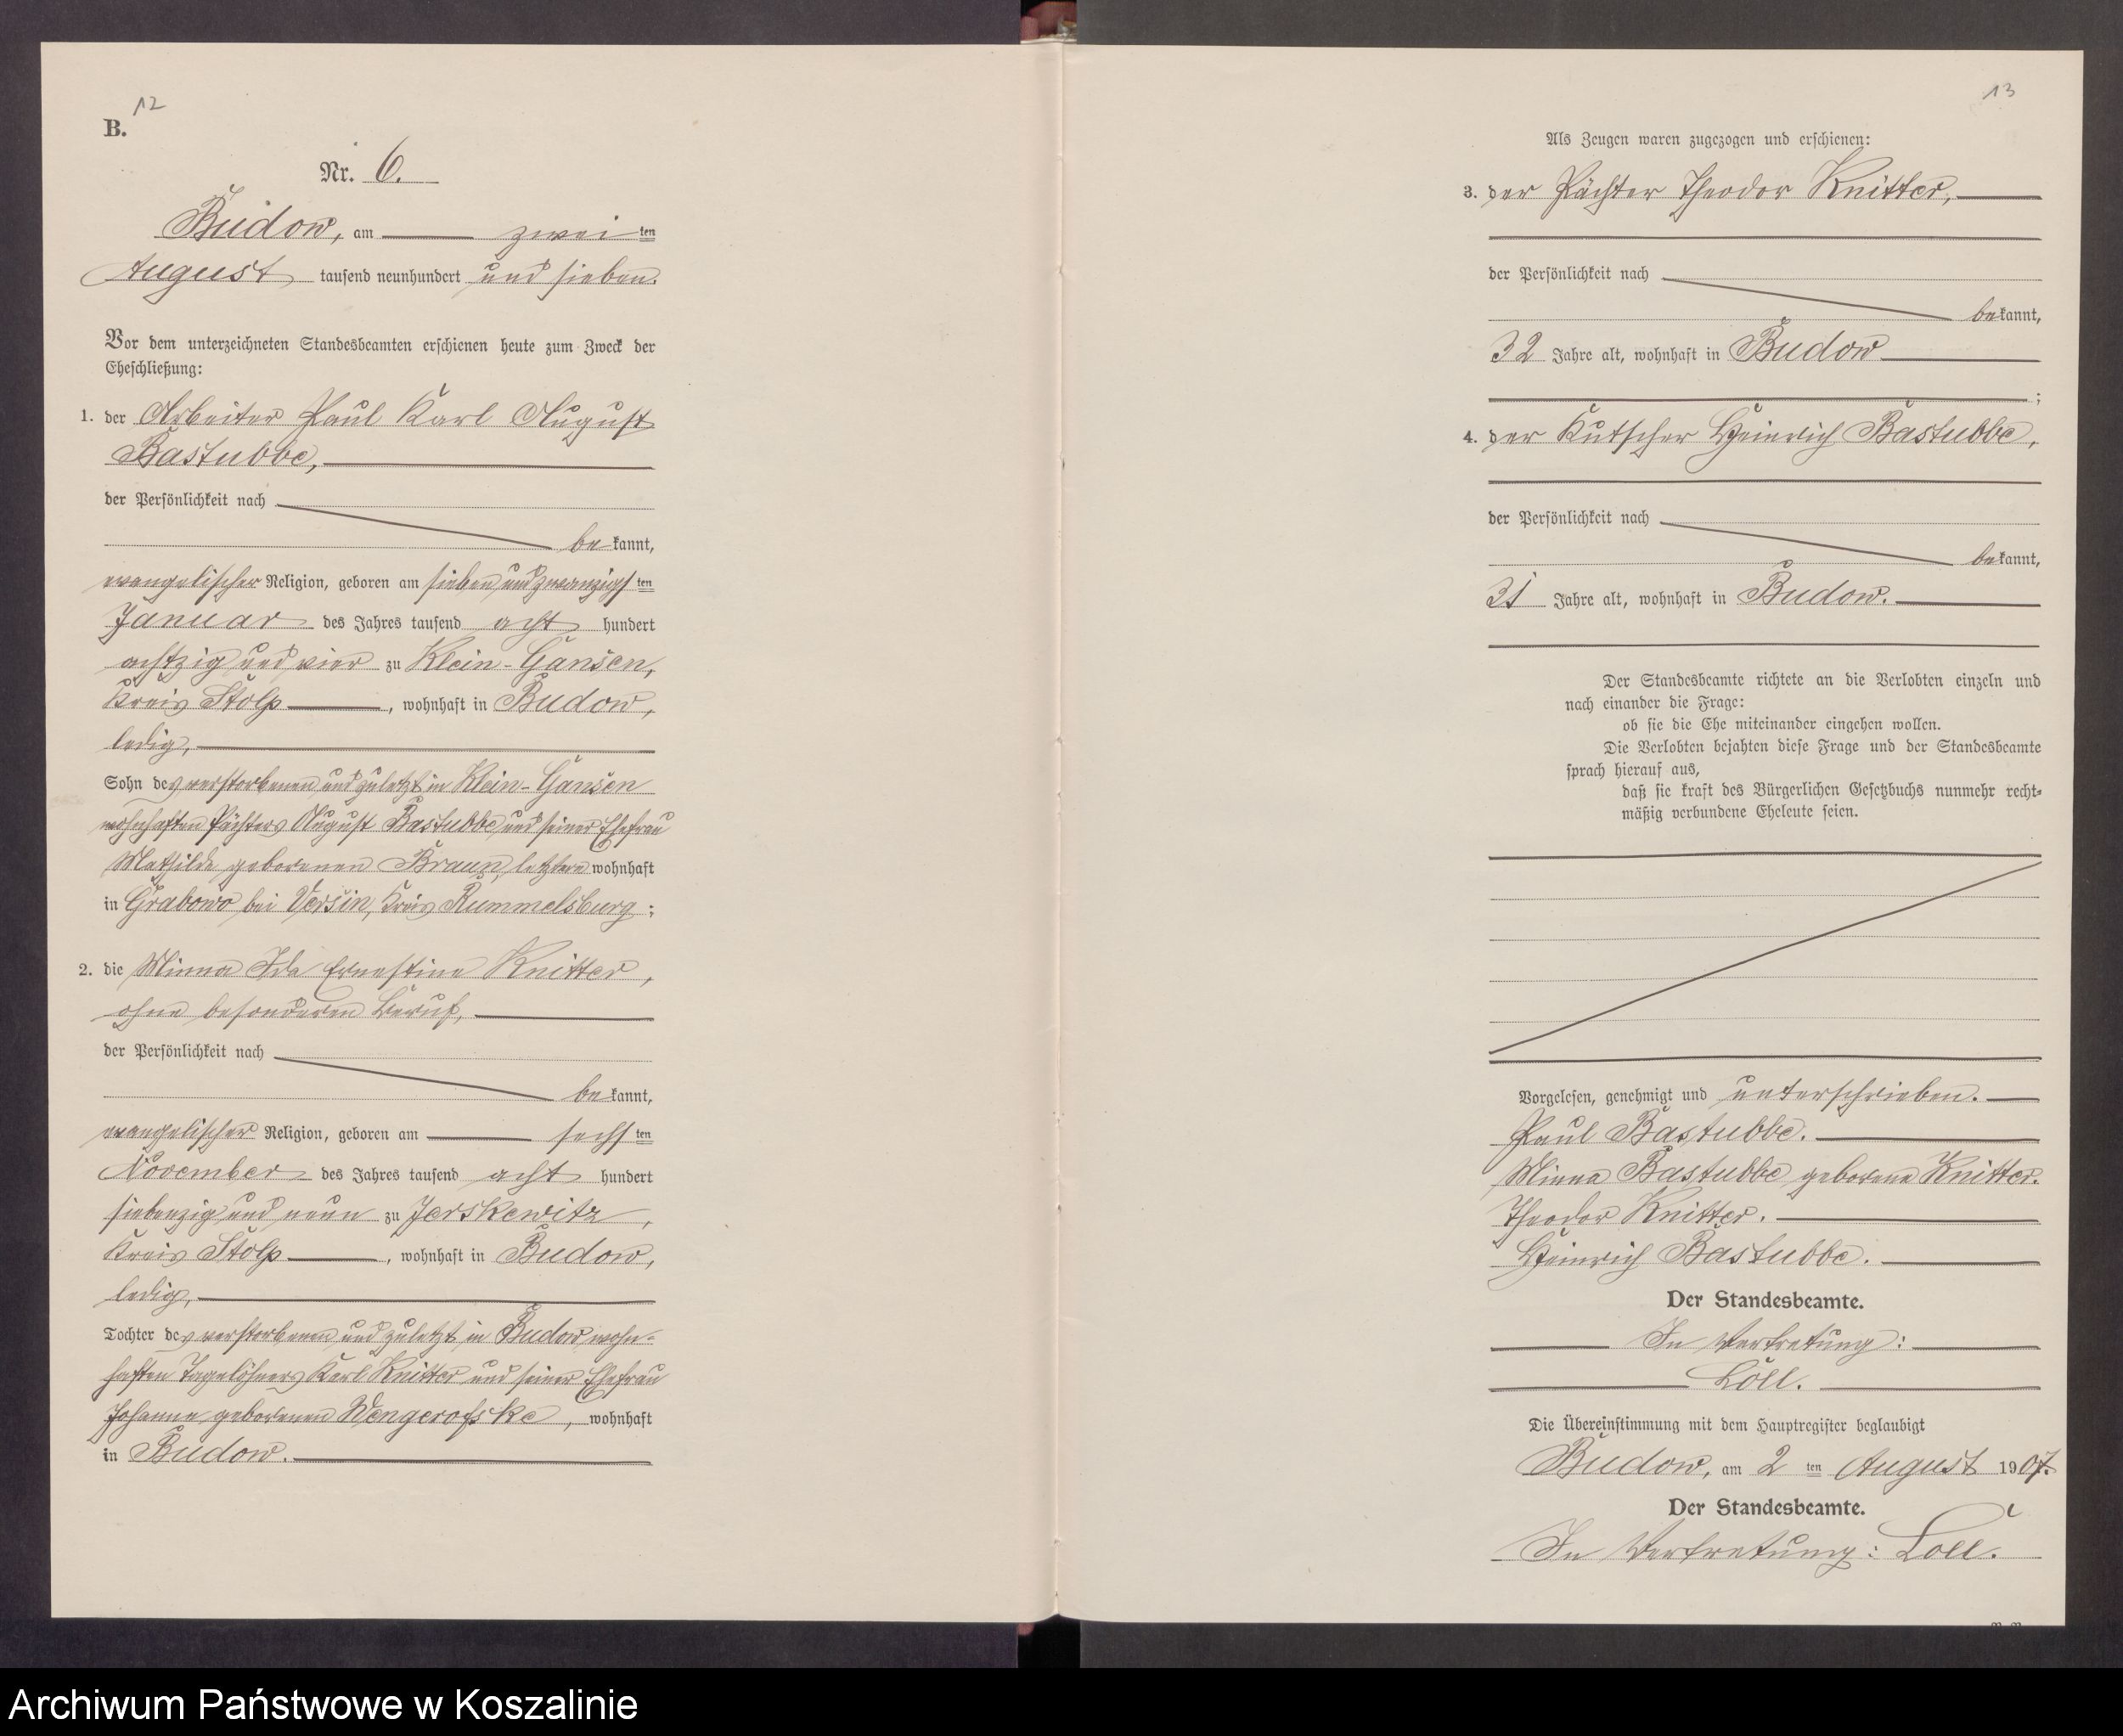 12
B.
Nr. 6.
Budow, am zwei ten
August tausend neunhundert und sieben.
Vor dem unterzeichneten Standesbeamten erschienen heute zum Zweck der
Eheschließung:
1. der Arbeiter Paul Karl August
Bastubbe,
der Persönlichkeit nach
be kannt,
evangelischer Religion, geboren am sieben und zwanzigs ten
Januar des Jahres tausend acht hundert
achtzig und vier zu Klein-Gansen,
Kreis Stolp, wohnhaft in Budow,
ledig,
Sohn des verstorbenen und zuletzt in Klein-Gansen
wohnhaften Pächters August Bastubbe und seiner Ehefrau
Mathilde geborenen Braun, letztere wohnhaft
in Grabowo bei Versin, Kreis Rummelsburg;
2. die Minna Ida Ernestine Knitter,
ohne besonderen Beruf,
der Persönlichkeit nach
be kannt,
evangelischer Religion, geboren am sechs ten
November des Jahres tausend acht hundert
siebenzig und neun zu Jerskewitz,
Kreis Stolp, wohnhaft in Budow,
ledig,
Tochter des verstorbenen und zuletzt in Budow wohn-
haften Tagelöhners Karl Knitter und seiner Ehefrau
Johanne geborenen Wengerofske, wohnhaft
in Budow.
13
Als Zeugen waren zugezogen und erschienen:
3. der Pächter Theodor Knitter,
der Persönlichkeit nach
be kannt,
32 Jahre alt, wohnhaft in Budow
;
4. der Kutscher Heinrich Bastubbe,
der Persönlichkeit nach
be kannt,
31 Jahre alt, wohnhaft in Budow.
Der Standesbeamte richtete an die Verlobten einzeln und
nach einander die Frage:
ob sie die Ehe miteinander eingehen wollen.
Die Verlobten bejahten diese Frage und der Standesbeamte
sprach hierauf aus,
daß sie kraft des Bürgerlichen Gesetzbuchs nunmehr recht-
mäßig verbundene Eheleute seien.
Vorgelesen, genehmigt und unterschrieben.
Paul Bastubbe.
Minna Bastubbe geborene Knitter.
Theodor Knitter.
Heinrich Bastubbe.
Der Standesbeamte.
In Vertretung:
Löll.
Die Übereinstimmung mit dem Hauptregister beglaubigt
Budow, am 2 ten August 1907.
Der Standesbeamte.
In Vertretung: Löll.
Archiwum Państwowe w Koszalinie